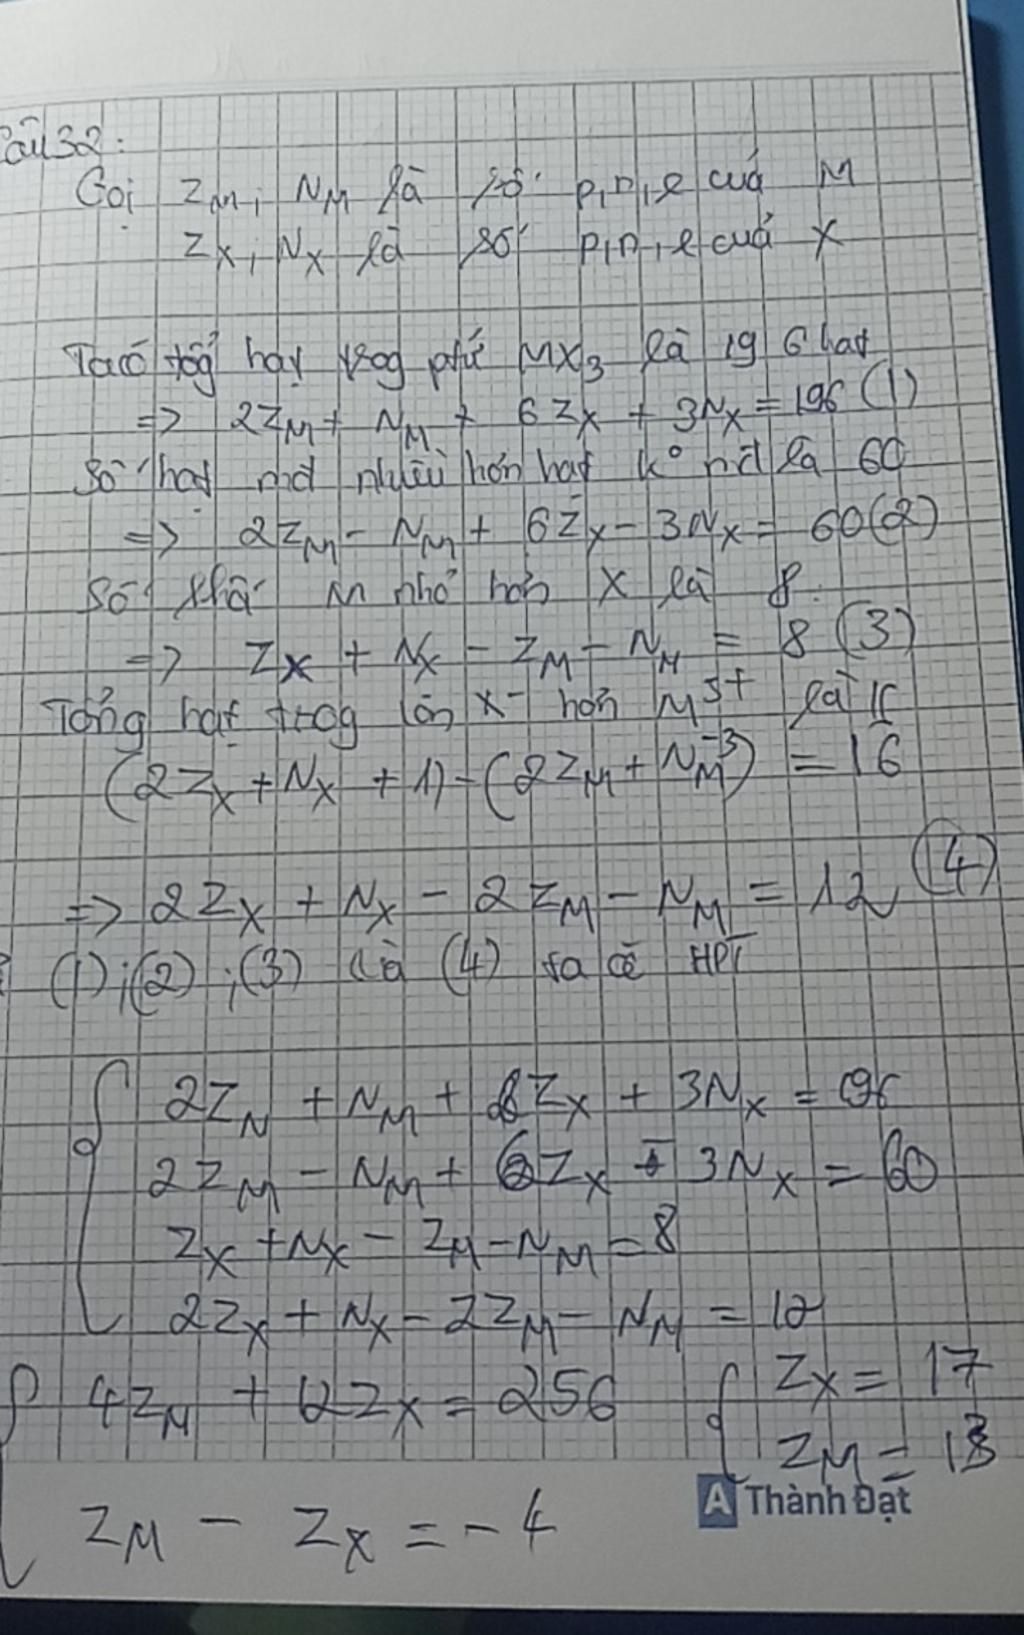 Câu 32:
Gọi Z_M, N_M là số p,n,e cuả M
Z_X, N_X là số p,n,e cuả X
Ta có tổg hạt trog ptử MX₃ là 196 hạt
=> 2Z_M + N_M + 6Z_X + 3N_X = 196 (1)
Số hạt mđ nhiều hơn hạt k° mđ là 60
=> 2Z_M - N_M + 6Z_X - 3N_X = 60 (2)
Số khối M nhỏ hơn X là 8.
=> Z_X + N_X - Z_M - N_M = 8 (3)
Tổng hạt trog ion X⁻ hơn M³⁺ là 16
(2Z_X + N_X + 1) - (2Z_M + N_M - 3) = 16
=> 2Z_X + N_X - 2Z_M - N_M = 12 (4)
(1);(2);(3) và (4) ta có HPT
2Z_M + N_M + 6Z_X + 3N_X = 196
2Z_M - N_M + 6Z_X - 3N_X = 60
Z_X + N_X - Z_M - N_M = 8
2Z_X + N_X - 2Z_M - N_M = 12
4Z_M + 12Z_X = 256
Z_M - Z_X = -4
Z_X = 17
Z_M = 13
A Thành Đạt